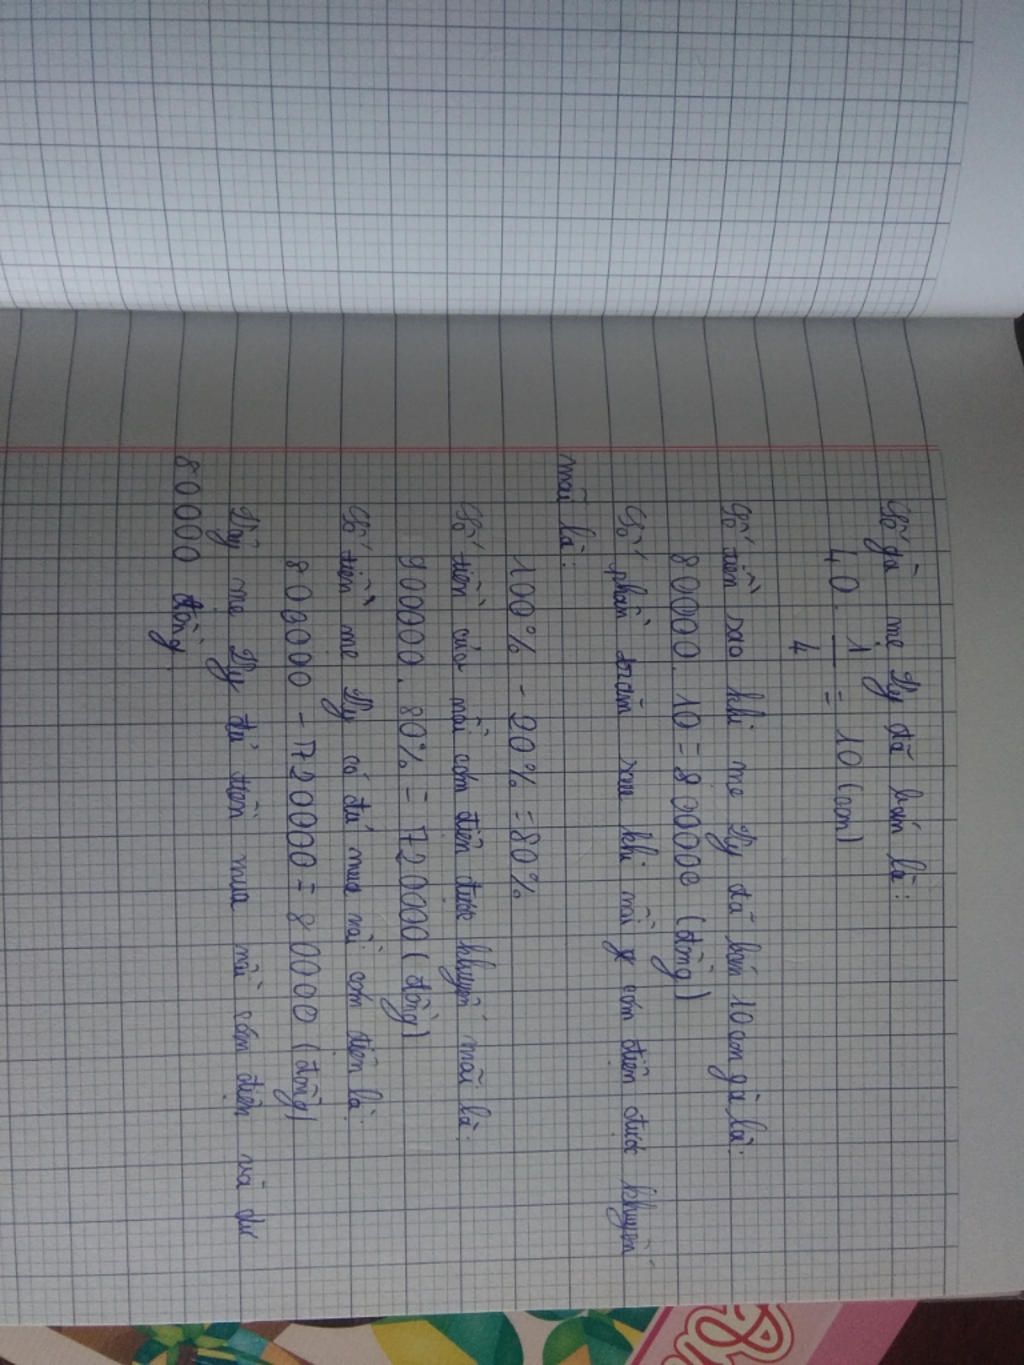 Số gà mẹ Vy đã bán là:
40 . 1/4 = 10 (con)
Số tiền sao khi mẹ Vy đã bán 10 con gà là:
80000 . 10 = 800000 (đồng)
Số phần trăm sau khi nồi cơm điện được khuyến
mãi là:
100% - 20% = 80%
Số tiền của nồi cơm điện được khuyến mãi là:
900000 . 80% = 720000 (đồng)
Số tiền mẹ Vy có đủ mua nồi cơm điện là:
800000 - 720000 = 80000 (đồng)
Vậy mẹ Vy đủ tiền mua nồi cơm điện và dư
80000 đồng.